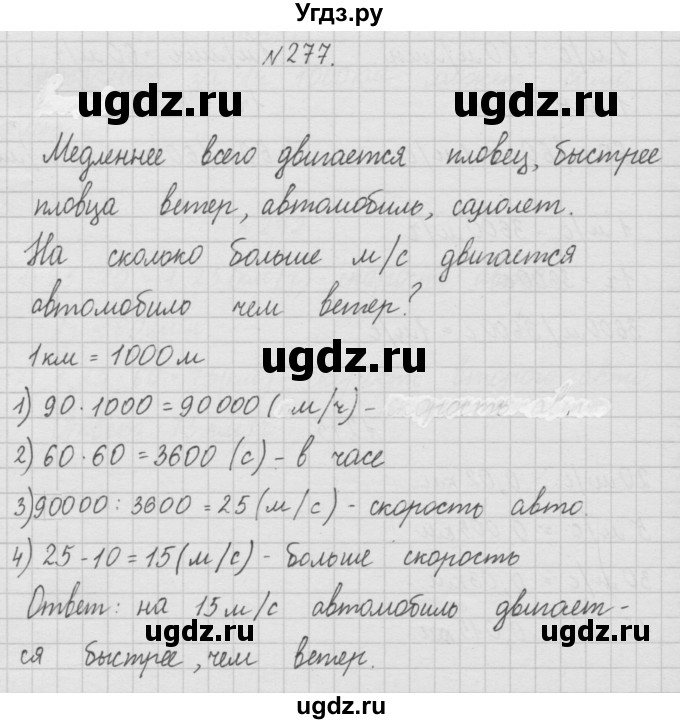 Угдз.ру
N 277.
ugdz.ru ugdz.ru
Медленнее всего двигается пловец, быстрее
пловца ветер, автомобиль, самолет.
На сколько больше м/с двигается
автомобиль чем ветер?
1 км = 1000 м
ugdz.ru
1) 90 · 1000 = 90000 (м/ч) -
2) 60 · 60 = 3600 (с) - в часе
3) 90000 : 3600 = 25 (м/с) - скорость авто.
4) 25 - 10 = 15 (м/с) - больше скорость
Ответ: на 15 м/с автомобиль двигает-
ugdz.ru ugdz.ru
ся быстрее, чем ветер.
ugdz.ru